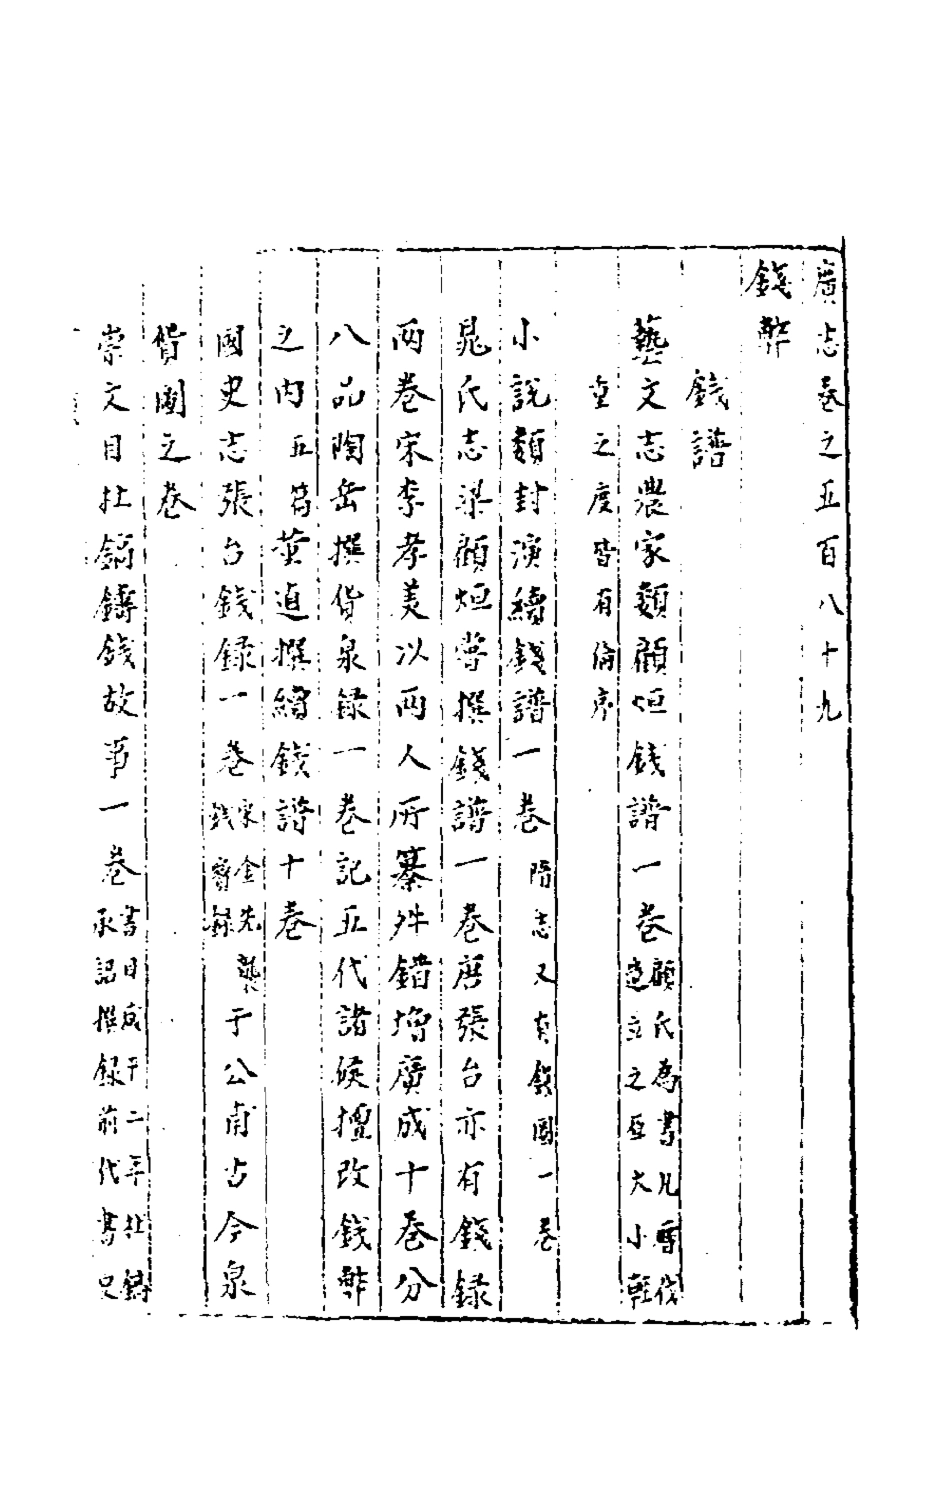 廣志卷之五百八十九
錢幣
錢譜
藝文志農家類顧烜錢譜一卷顧氏為書凡歷代造立之原大小輕
重之度皆有倫序
小說類封演續錢譜一卷隋志又有錢圖一卷
晁氏志梁顧烜嘗撰錢譜一卷唐張台亦有錢録
兩卷宋李孝美以兩人所纂舛錯增廣成十卷分
八品陶岳撰貨泉録一卷記五代諸侯擅改錢幣
之内五萹董逌撰續錢譜十卷
國史志張台錢録一卷宋金先錢寶録龔于公甫古今泉
貨圖之卷
崇文目杜鎬鑄錢故事一卷書目咸平二年杜鎬承詔撰録前代書史